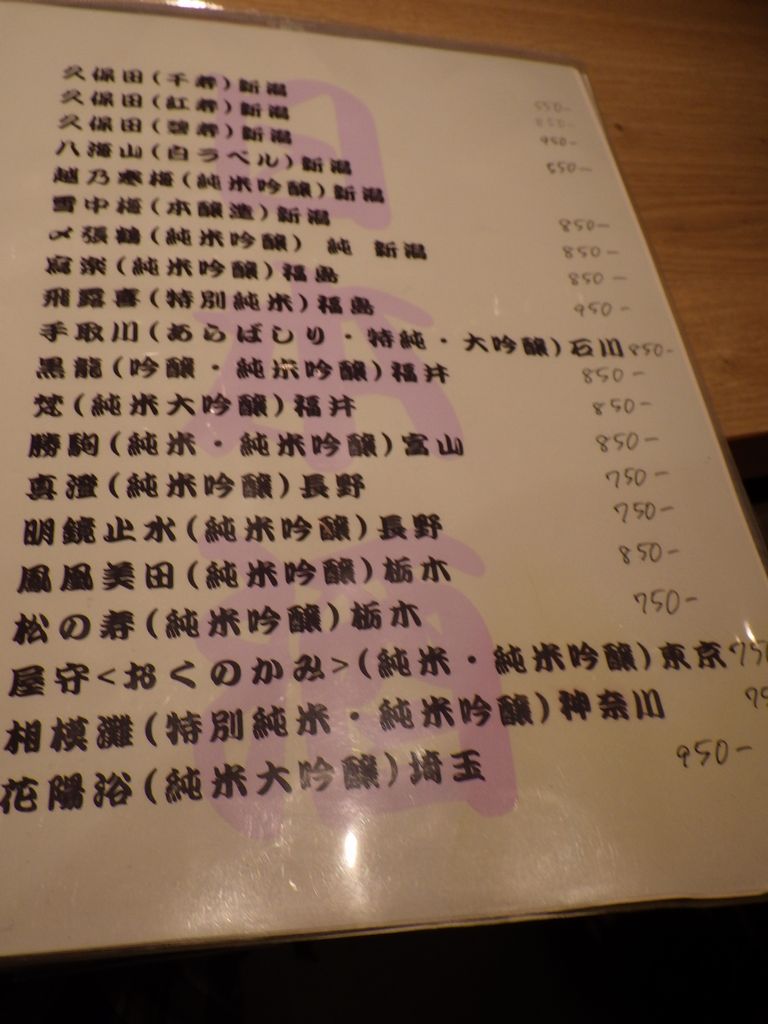 久保田(千寿)新潟 550-
久保田(紅寿)新潟 850-
久保田(碧寿)新潟 950-
八海山(白ラベル)新潟 550-
越乃寒梅(純米吟醸)新潟
雪中梅(本醸造)新潟 850-
〆張鶴(純米吟醸) 純 新潟 850-
寫楽(純米吟醸)福島 850-
飛露喜(特別純米)福島 950-
手取川(あらばしり・特純・大吟醸)石川 850-
黒龍(吟醸・純米吟醸)福井 850-
梵(純米大吟醸)福井 850-
勝駒(純米・純米吟醸)富山 850-
真澄(純米吟醸)長野 750-
明鏡止水(純米吟醸)長野 750-
鳳凰美田(純米吟醸)栃木 850-
松の寿(純米吟醸)栃木 750-
屋守<おくのかみ>(純米・純米吟醸)東京 750
相模灘(特別純米・純米吟醸)神奈川 75
花陽浴(純米大吟醸)埼玉 950-
日本酒